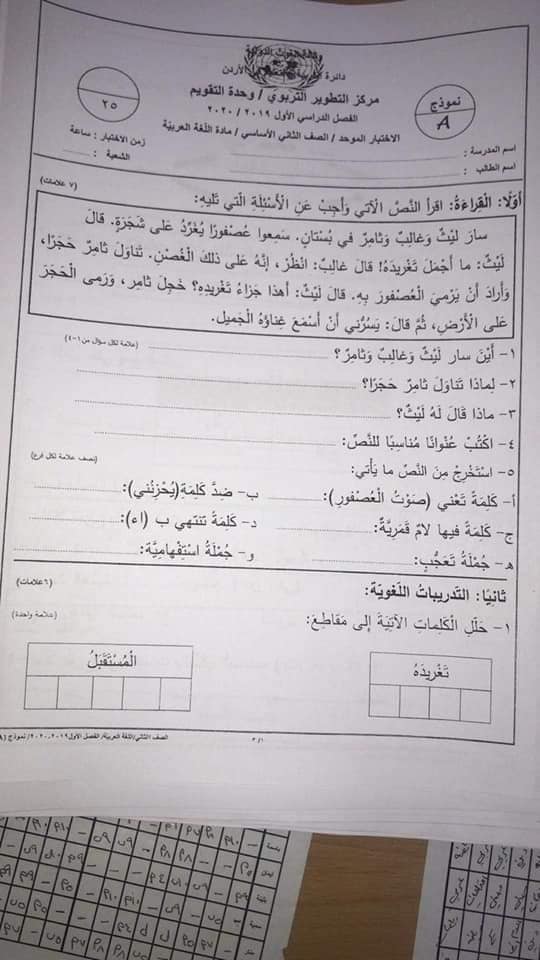 وكالة الغوث الدولية
دائرة التربية والتعليم / الأردن
مركز التطوير التربوي / وحدة التقويم
الفصل الدراسي الأول ٢٠١٩ / ٢٠٢٠
الاختبار الموحد / الصف الثاني الأساسي / مادة اللغة العربية
نموذج
A
٢٥
زمن الاختبار : ساعة
اسم المدرسة :
اسم الطالب :
الشعبة :
أوّلًا: الْقِراءَةُ: اقرأ النَّصَّ الْآتي وَأجِبْ عَنِ الْأَسْئِلَةِ الَّتي تَليهِ: (٧ علامات)
سارَ لَيْثٌ وَغالِبٌ وَثامِرٌ في بُسْتانٍ. سَمِعوا عُصْفورًا يُغَرِّدُ عَلى شَجَرَةٍ. قالَ
لَيْثٌ: ما أَجْمَلَ تَغْريدَهُ! قالَ غالِبٌ: انْظُرْ، إِنَّهُ عَلى ذلكَ الْغُصْنِ. تَناوَلَ ثامِرٌ حَجَرًا،
وَأرادَ أَنْ يَرْمِيَ الْعُصْفورَ بِهِ. قالَ لَيْثٌ: أَهذا جَزاءُ تَغْريدِهِ؟ خَجِلَ ثامِر، وَرَمى الْحَجَرَ
عَلى الْأَرْضِ، ثُمَّ قالَ: يَسُرُّني أَنْ أَسْمَعَ غِناؤهُ الْجَميل.
١- أَيْنَ سار لَيْثٌ وَغالِبٌ وَثامِرٌ ؟ (علامة لكل سؤال من ١-٤)
٢- لِماذا تَناوَلَ ثامِرٌ حَجَرًا؟
٣- ماذا قالَ لَهُ لَيْثٌ؟
٤- اكْتُبْ عُنْوانًا مُناسِبًا للنَّصِّ:
٥- اسْتَخْرِجْ مِنَ النَّصِّ ما يَأْتي: (نصف علامة لكل فرع)
أ- كَلِمَةً تَعْني (صَوْتُ الْعُصْفورِ): ب- ضِدَّ كَلِمَةِ(يُحْزِنُني):
ج- كَلِمَةً فيها لامٌ قَمَرِيَّةٌ: د- كَلِمَةً تَنْتَهي ب (اء):
ه- جُمْلَةُ تَعَجُّبٍ: و- جُمْلَةُ اسْتِفْهامِيَّة:
ثانيًا: التّدريباتُ اللّغويّة: (٦علامات)
١- حَلّلِ الْكَلِماتِ الآتِيَةَ إلى مَقاطِعَ: (علامة واحدة)
تَغْريدَهُ
الْمُسْتَقْبَلُ
الصف الثاني/اللغة العربية/الفصل الأول ٢٠١٩/٢٠٢٠/ نموذج (A